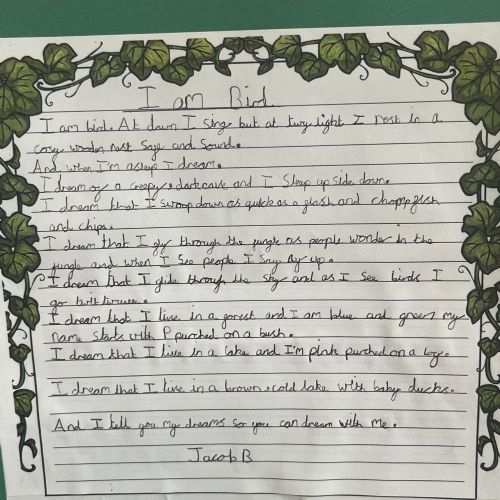 I am Bird
I am bird. At dawn I sing but at twy-light I rest in a
cosy wooden nest safe and sound.
And when I'm asleep I dream.
I dream of a creepy, dark cave and I sleep up side down.
I dream that I swoop down as quick as a flash and chomp fish
and chips.
I dream that I fly through the jungle as people wonder in the
jungle and when I see people I say up.
I dream that I glide through the sky and as I see birds I
go
I dream that I live in a forest and I am blue and green my
name starts with P purched on a bush.
I dream that I live in a lake and I'm pink purched on a log.
I dream that I live in a brown, cold lake with baby ducks.
And I tell you my dreams so you can dream with me.
Jacob B